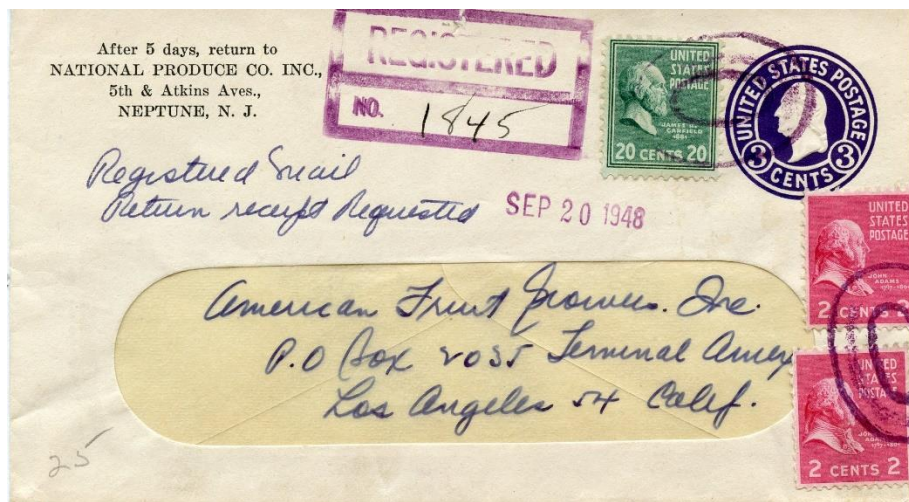 After 5 days, return to
NATIONAL PRODUCE CO. INC.,
5th & Atkins Aves.,
NEPTUNE, N. J.
REGISTERED
NO. 1845
UNITED
STATES
POSTAGE
JAMES A.
GARFIELD
1881
20 CENTS 20
UNITED STATES POSTAGE
3 3
CENTS
Registered Mail
Return receipt Requested
SEP 20 1948
UNITED
STATES
POSTAGE
JOHN
ADAMS
1797-1801
2 CENTS 2
American Fruit Growers. Inc.
P.O Box 2035 Terminal Annex
Los Angeles 54 Calif.
UNITED
STATES
POSTA
JOHN
ADA
2 CENTS 2
25